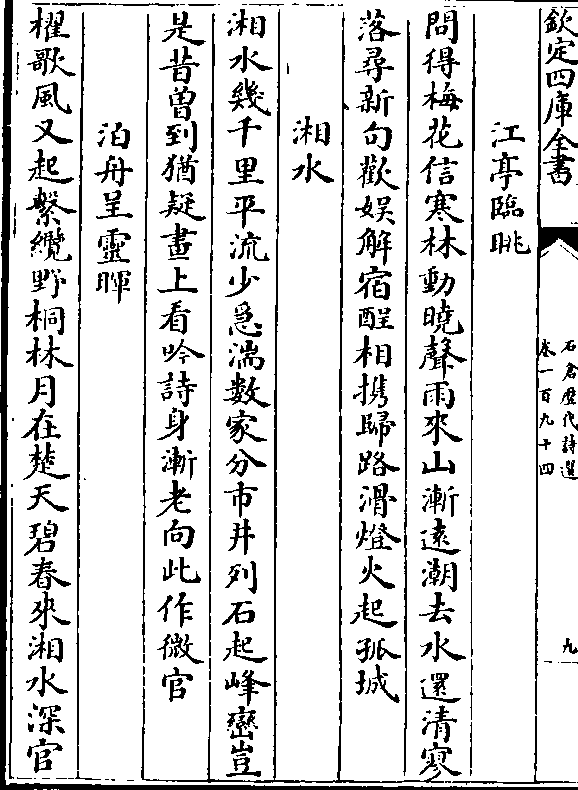 欽定四庫全書
石倉歴代詩選
卷一百九十四
九
江亭臨眺
問得梅花信寒林動曉聲雨來山漸遠潮去水還清寥
落尋新句歡娱解宿酲相携歸路滑燈火起孤城
湘水
湘水幾千里平流少急湍数家分市井列石起峰巒豈
是昔曾到猶疑畫上看吟詩身漸老向此作微官
泊舟呈靈暉
櫂歌風又起繫纜野桐林月在楚天碧春來湘水深官